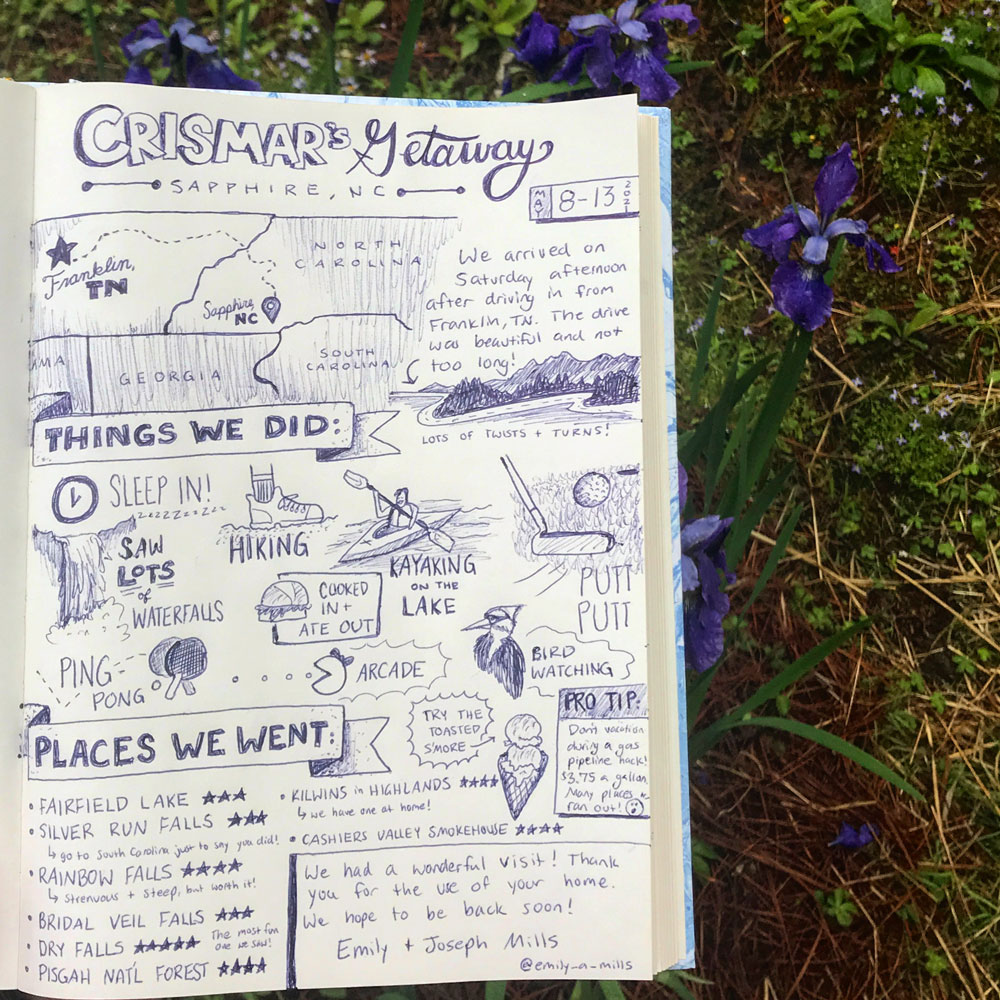 CRISMAR's Getaway
SAPPHIRE, NC
MAY 8-13 2021
Franklin,
TN
NORTH
CAROLINA
Sapphire,
NC
MA
GEORGIA
SOUTH
CAROLINA
We arrived on
Saturday afternoon
after driving in from
Franklin, TN. The drive
was beautiful and not
too long!
LOTS OF TWISTS + TURNS!
THINGS WE DID:
SLEEP IN!
zzzzzzzzzz
HIKING
KAYAKING
ON THE
LAKE
PUTT
PUTT
SAW
LOTS
of
WATERFALLS
COOKED
IN +
ATE OUT
BIRD
WATCHING
PING
PONG
ARCADE
PLACES WE WENT:
TRY THE
TOASTED
S'MORE
PRO TIP:
Don't vacation
during a gas
pipeline hack!
$3.75 a gallon.
Many places
ran out!
• FAIRFIELD LAKE ★★★
• SILVER RUN FALLS ★★★
↳ go to South Carolina just to say you did!
• RAINBOW FALLS ★★★★
↳ strenuous + steep, but worth it!
• BRIDAL VEIL FALLS ★★★
• DRY FALLS ★★★★★
The most fun
one we saw!
• PISGAH NAT'L FOREST ★★★★
• KILWINS in HIGHLANDS ★★★★
↳ we have one at home!
• CASHIERS VALLEY SMOKEHOUSE ★★★★
We had a wonderful visit! Thank
you for the use of your home.
We hope to be back soon!
Emily + Joseph Mills
@emily_a_mills